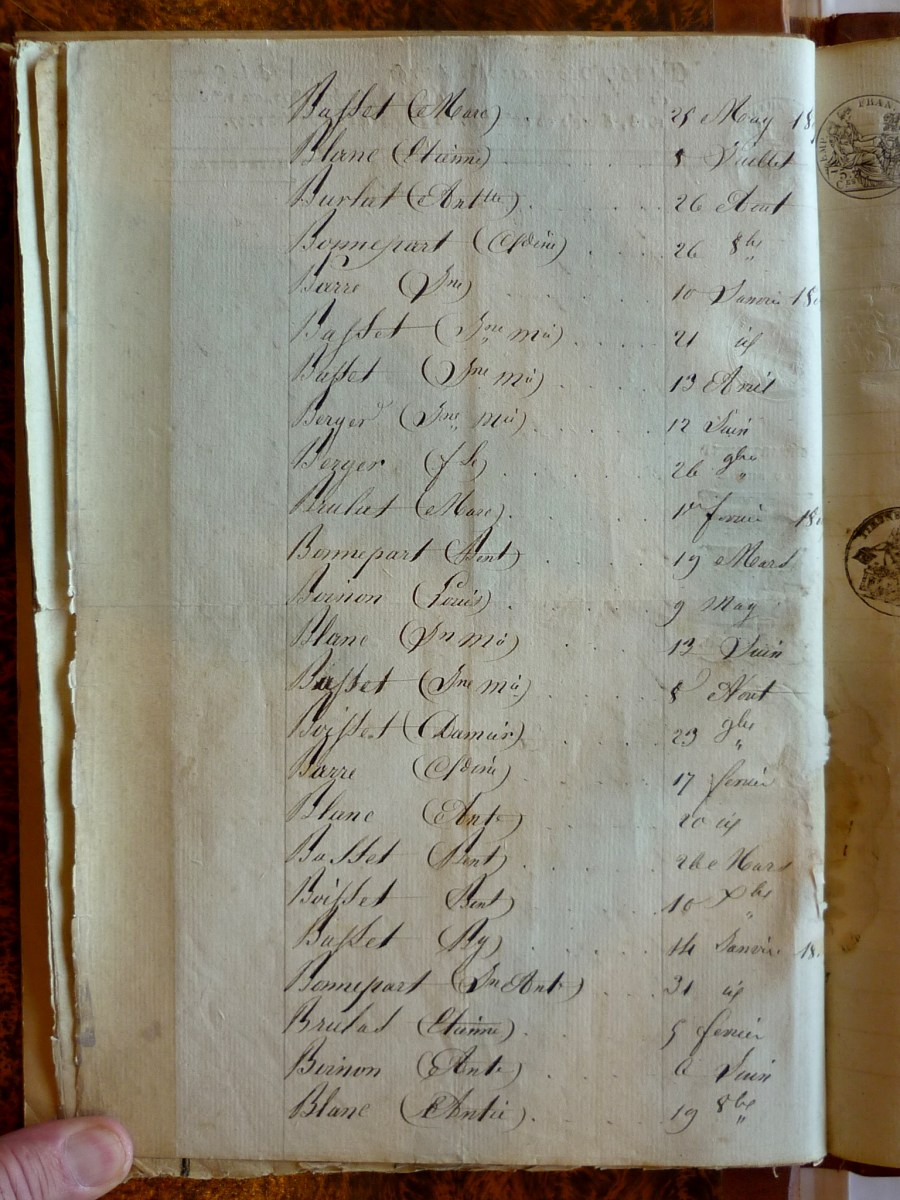 Basset (Marc) . 25 May 18
Blanc (Etienne) . . . . 8 Juillet
Burlat (Antt) . . . . 26 Aout
Bonnepart (Cldine) . . . 26 8bre
Barre (Jne) . . . . . 10 Janvier 18
Basset (Jne Mie) . . . . 21 id
Basset (Jne Mie) . . . . 13 Avril
Berger (Jne Mie) . . . . 12 Juin
Berger (fs) . . . . . 26 9bre
Brulat (Marc) . . . . 1er fevrier 18
Bonnepart (Bent) . . . 19 Mars
Boinon (Louis) . . . . 9 May
Blanc (Jn Mie) . . . 13 Juin
Basset (Jne Mie) . . . 8 Aout
Boisset (Damien) . . . . 23 9bre
Barre (Cldine) . . . . 17 fevrier
Blanc (Ante) . . . . 20 id
Basset (Bent) . . . . Mars
Boisset Bent) . . . . 10 Xbre
Basset . . . . 14 Janvier 18
Bonnepart (Jn Ante) . . . 31 id
Brulas (Etienne) . . . . 5 fevrier
Boinon (Ante) . . . . Juin
Blanc . . . . 19 8bre